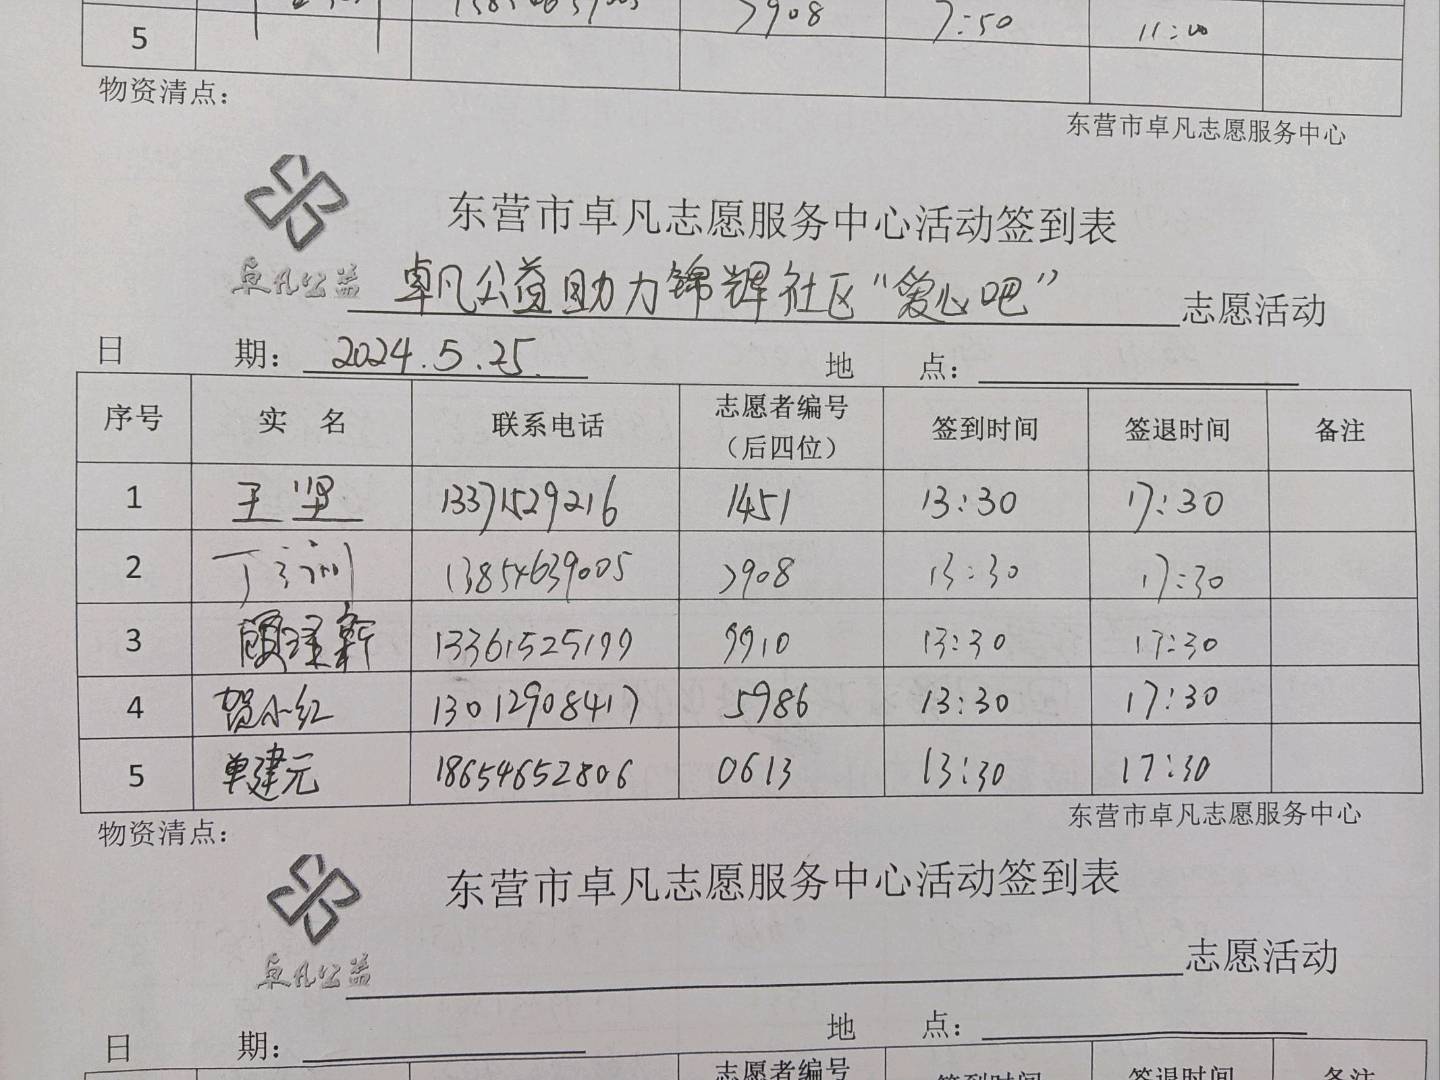 7908 7:50 11:00
5
物资清点：
东营市卓凡志愿服务中心
东营市卓凡志愿服务中心活动签到表
卓凡公益
卓凡公益助力锦辉社区“爱心吧” 志愿活动
日 期： 2024.5.25. 地 点：
序号 实 名 联系电话 志愿者编号（后四位） 签到时间 签退时间 备注
1 王坚 13371529216 1451 13:30 17:30
2 丁 13854639005 7908 13:30 17:30
3 顾 新 13361525199 9910 13:30 17:30
4 贺小红 13012908417 5986 13:30 17:30
5 单建元 18654652806 0613 13:30 17:30
物资清点：
东营市卓凡志愿服务中心
东营市卓凡志愿服务中心活动签到表
卓凡公益
志愿活动
日 期： 地 点：
志愿者编号 签到时间 签退时间 备注